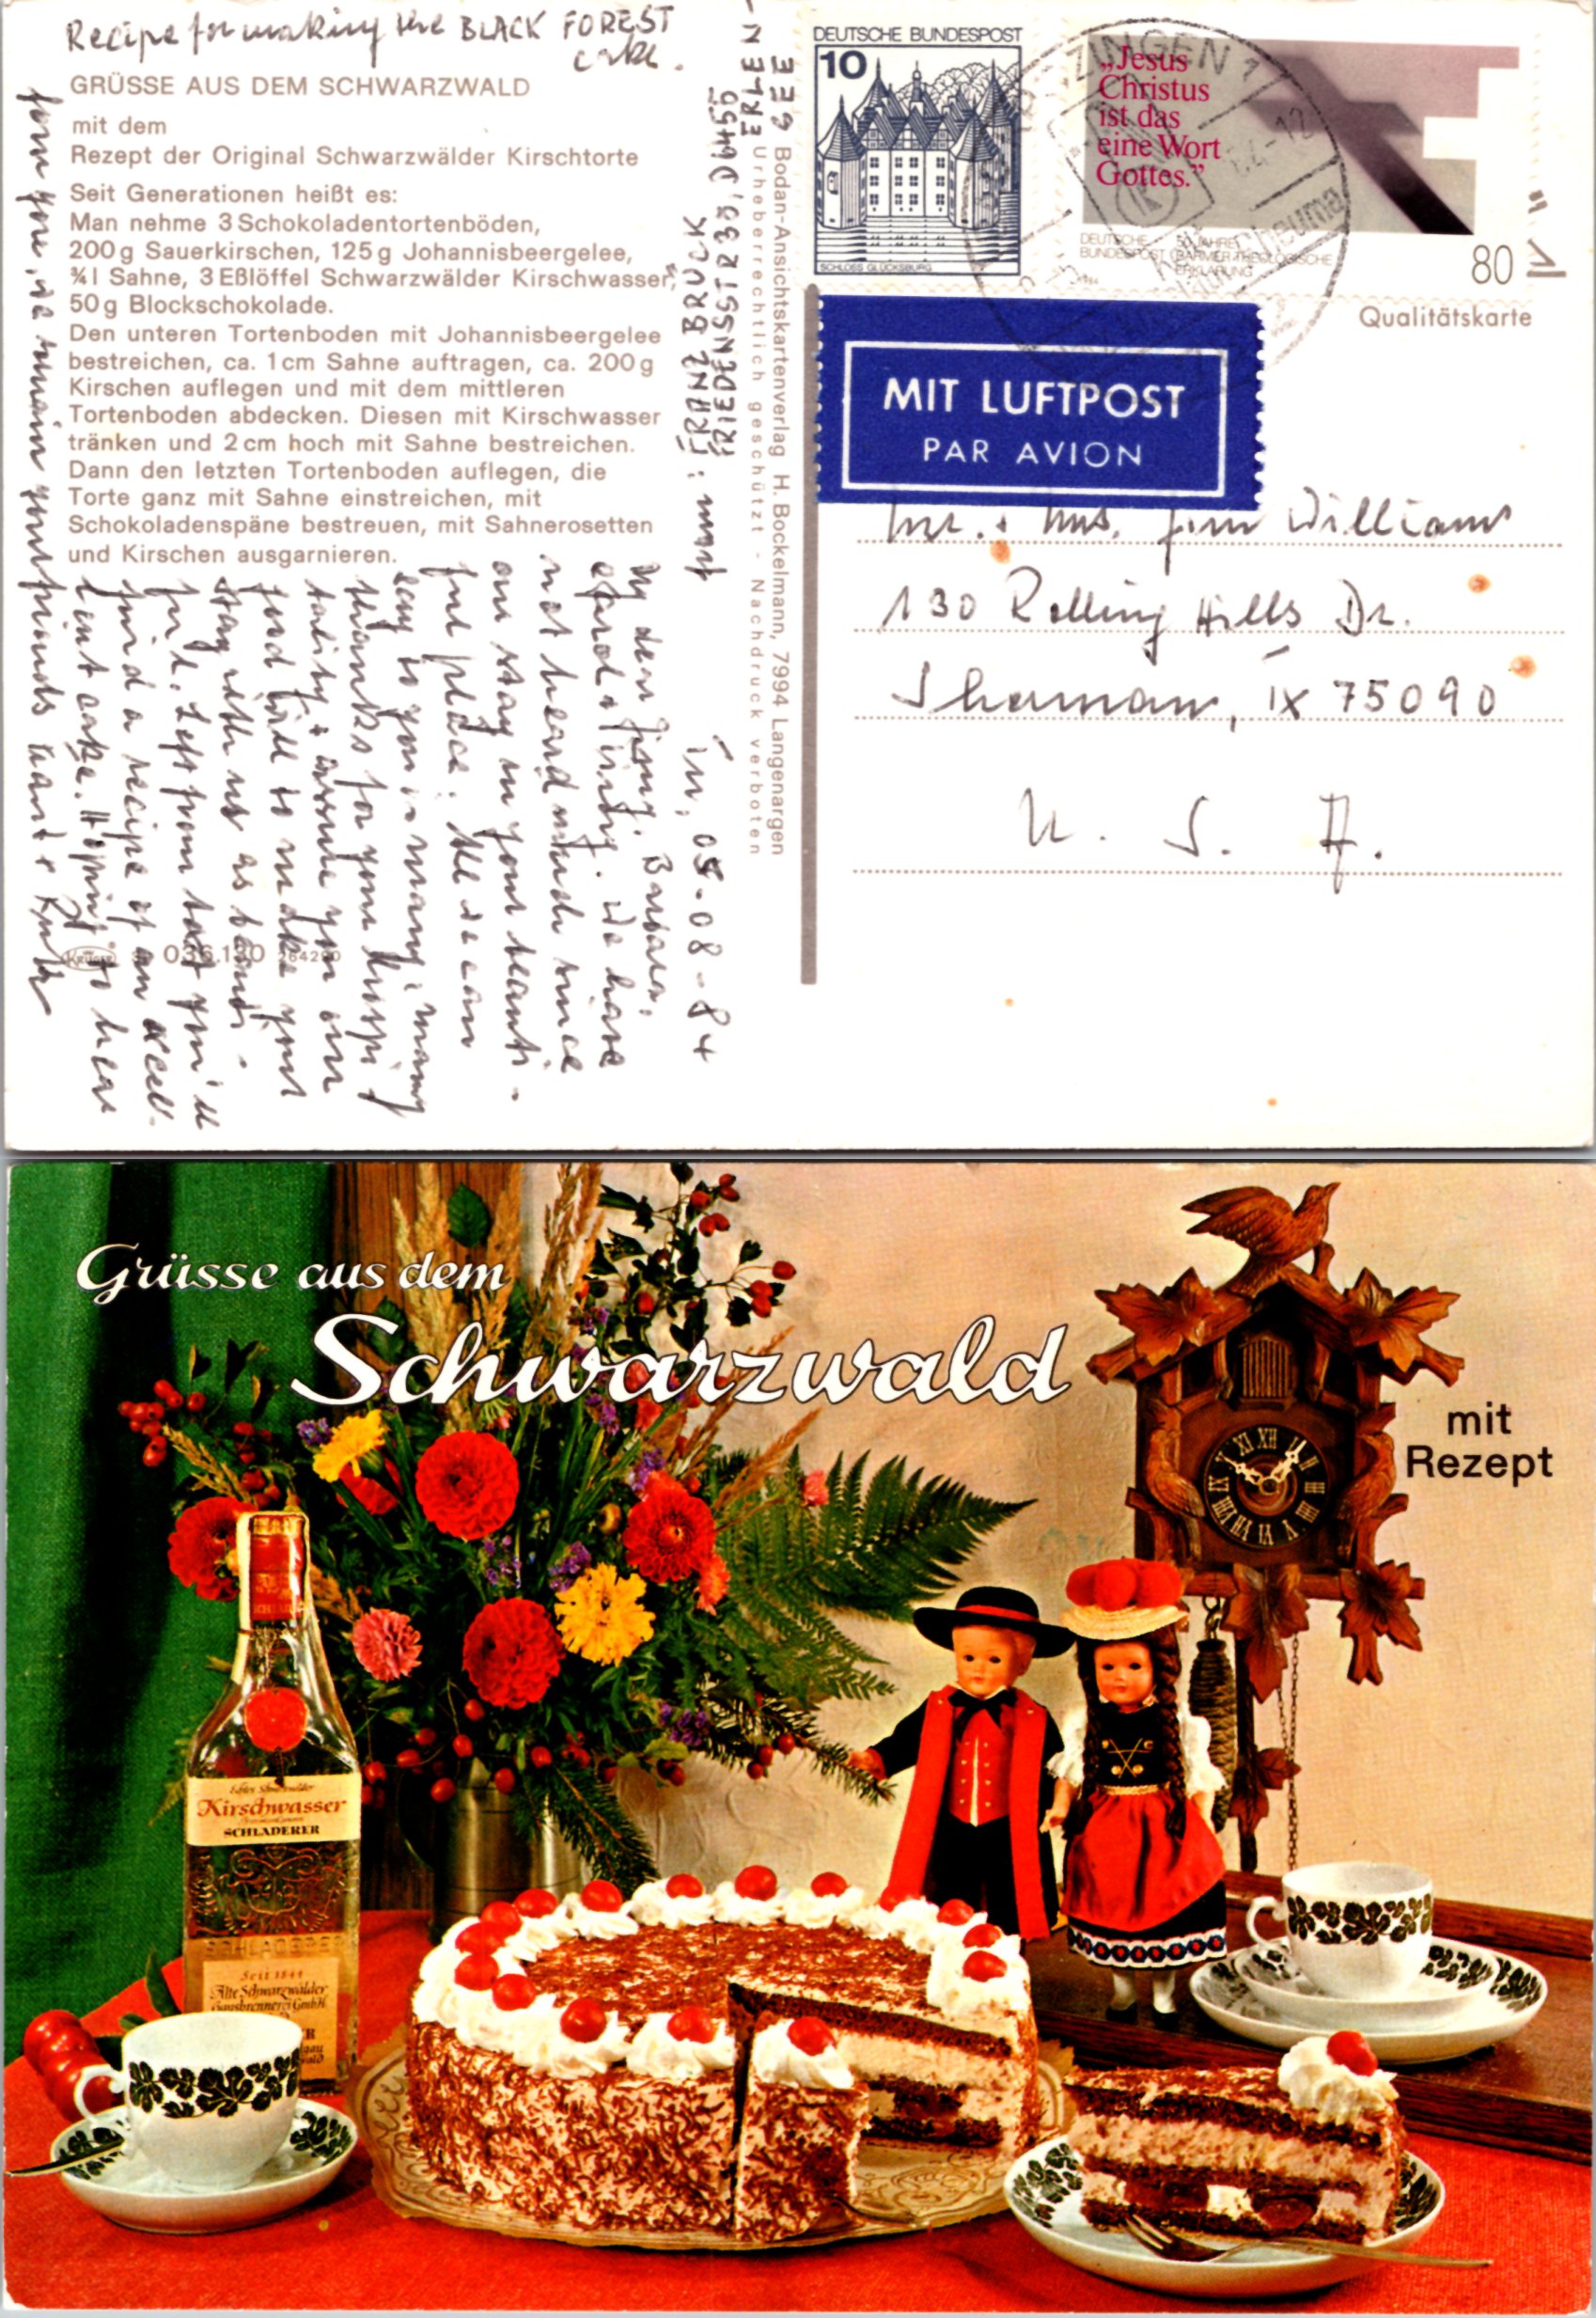 Recipe for making the BLACK FOREST
cake.
GRÜSSE AUS DEM SCHWARZWALD
mit dem
Rezept der Original Schwarzwälder Kirschtorte
Seit Generationen heißt es:
Man nehme 3 Schokoladentortenböden,
200 g Sauerkirschen, 125 g Johannisbeergelee,
¾ l Sahne, 3 Eßlöffel Schwarzwälder Kirschwasser,
50 g Blockschokolade.
Den unteren Tortenboden mit Johannisbeergelee
bestreichen, ca. 1 cm Sahne auftragen, ca. 200 g
Kirschen auflegen und mit dem mittleren
Tortenboden abdecken. Diesen mit Kirschwasser
tränken und 2 cm hoch mit Sahne bestreichen.
Dann den letzten Tortenboden auflegen, die
Torte ganz mit Sahne einstreichen, mit
Schokoladenspäne bestreuen, mit Sahnerosetten
und Kirschen ausgarnieren.
KRÜGER 036.130 264290
FRANZ BRUCK
FRIEDENSSTR 38, D6455
ERLEN-
SEE
05-08-84
My dear Jimmy, Barbara,
Carol + Cindy. We have
not heard much since
our stay in your beauti-
ful place. All we can
say to you is many, many
thanks for your hospi-
tality + assure you our
good will to make your
stay with us as beauti-
ful. Left from last you'll
find a recipe of an excel-
lent cake. Hoping to hear
from you, we remain your friends
Bodan-Ansichtskartenverlag H. Bockelmann, 7994 Langenargen
Urheberrechtlich geschützt - Nachdruck verboten
DEUTSCHE BUNDESPOST
10
SCHLOSS GLÜCKSBURG
„Jesus
Christus
ist das
eine Wort
Gottes.”
DEUTSCHE BUNDESPOST
50 JAHRE
BARMER THEOLOGISCHE
ERKLÄRUNG
80
Qualitätskarte
MIT LUFTPOST
PAR AVION
Mr. + Mrs. Jim Williams
130 Rolling Hills Dr.
Sherman, TX 75090
U. S. A.
Grüsse aus dem
Schwarzwald
mit
Rezept
XII I II III IIII V VI VII VIII IX X XI
Echtes Schwarzwälder
Kirschwasser
SCHLADERER
SCHLADERER
Seit 1844
Alte Schwarzwälder
Hausbrennerei GmbH